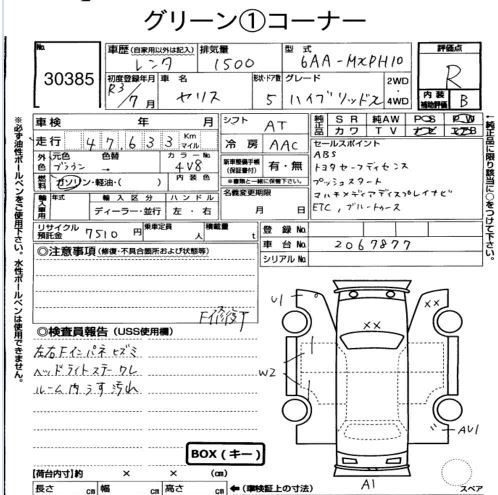 グリーン①コーナー
No.
30385
車歴(自家用以外は記入)
レンタ
排気量
1500
型式
6AA-MXPH10
評価点
R
初度登録年月
R3/7月
車名
ヤリス
形状・ドア数
5
グレード
ハイブリッドX
2WD
4WD
内装
補助評価
B
車検 年 月
シフト
AT
純正品
SR 純AW PS PW
カワ TV ナビ エアB
走行 47,633 Km
マイル
冷房
AAC
セールスポイント
ABS
トヨタセーフティセンス
プッシュスタート
マルチメディアディスプレイナビ
ETC,ブルートゥース
外色
元色
ブラウン
色替
→
カラーNo.
4V8
新車整備手帳
(保証書付)
有・無
※書類と一緒に保管下さい。
燃料
ガソリン・軽油・( )
内装色
名義変更期限
月 日
輸入車用
年式
輸入区分
ディーラー・並行
ハンドル
左・右
リサイクル
預託金
7510円
乗車定員
人
積載量
t
登録No.
車台No.
2067877
シリアルNo.
※必ず油性ボールペンをご使用下さい。水性ボールペンは使用できません。
←純正品に限り該当に○をつけて下さい。
◎注意事項(修復・不具合箇所および状態等)
F修復T
◎検査員報告(USS使用欄)
左右Fインパネヒズミ
ヘッドライトステークレ
ルーム内うす汚れ
BOX(キー)
U1
XX
XX
W2
AU1
A1
スペア
【荷台内寸】約 × × (cm)
長さ cm 幅 cm 高さ cm ←(車検証上の寸法)